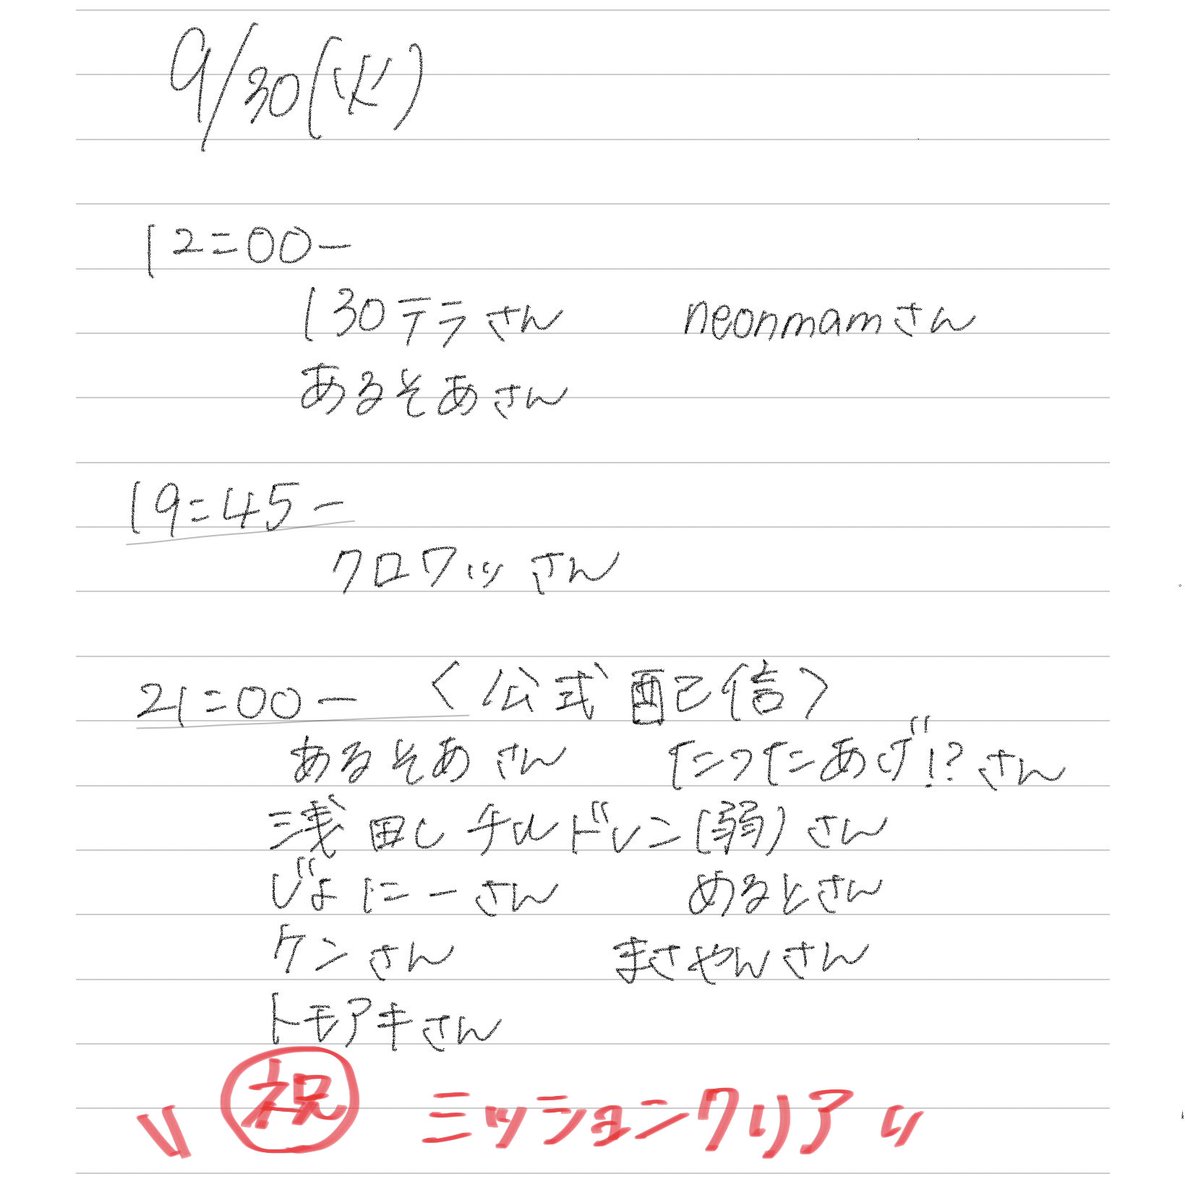 9/30(火)
12:00ー
130テラさん　neonmamさん
あるそあさん
19:45ー
クロワッさん
21:00ー 〈公式配信〉
あるそあさん　たつたあげ!?さん
浅田しチルドレン(弱)さん
じょにーさん　めるとさん
ケンさん　まさやんさん
トモアキさん
\\ ㊗ ミッションクリア //